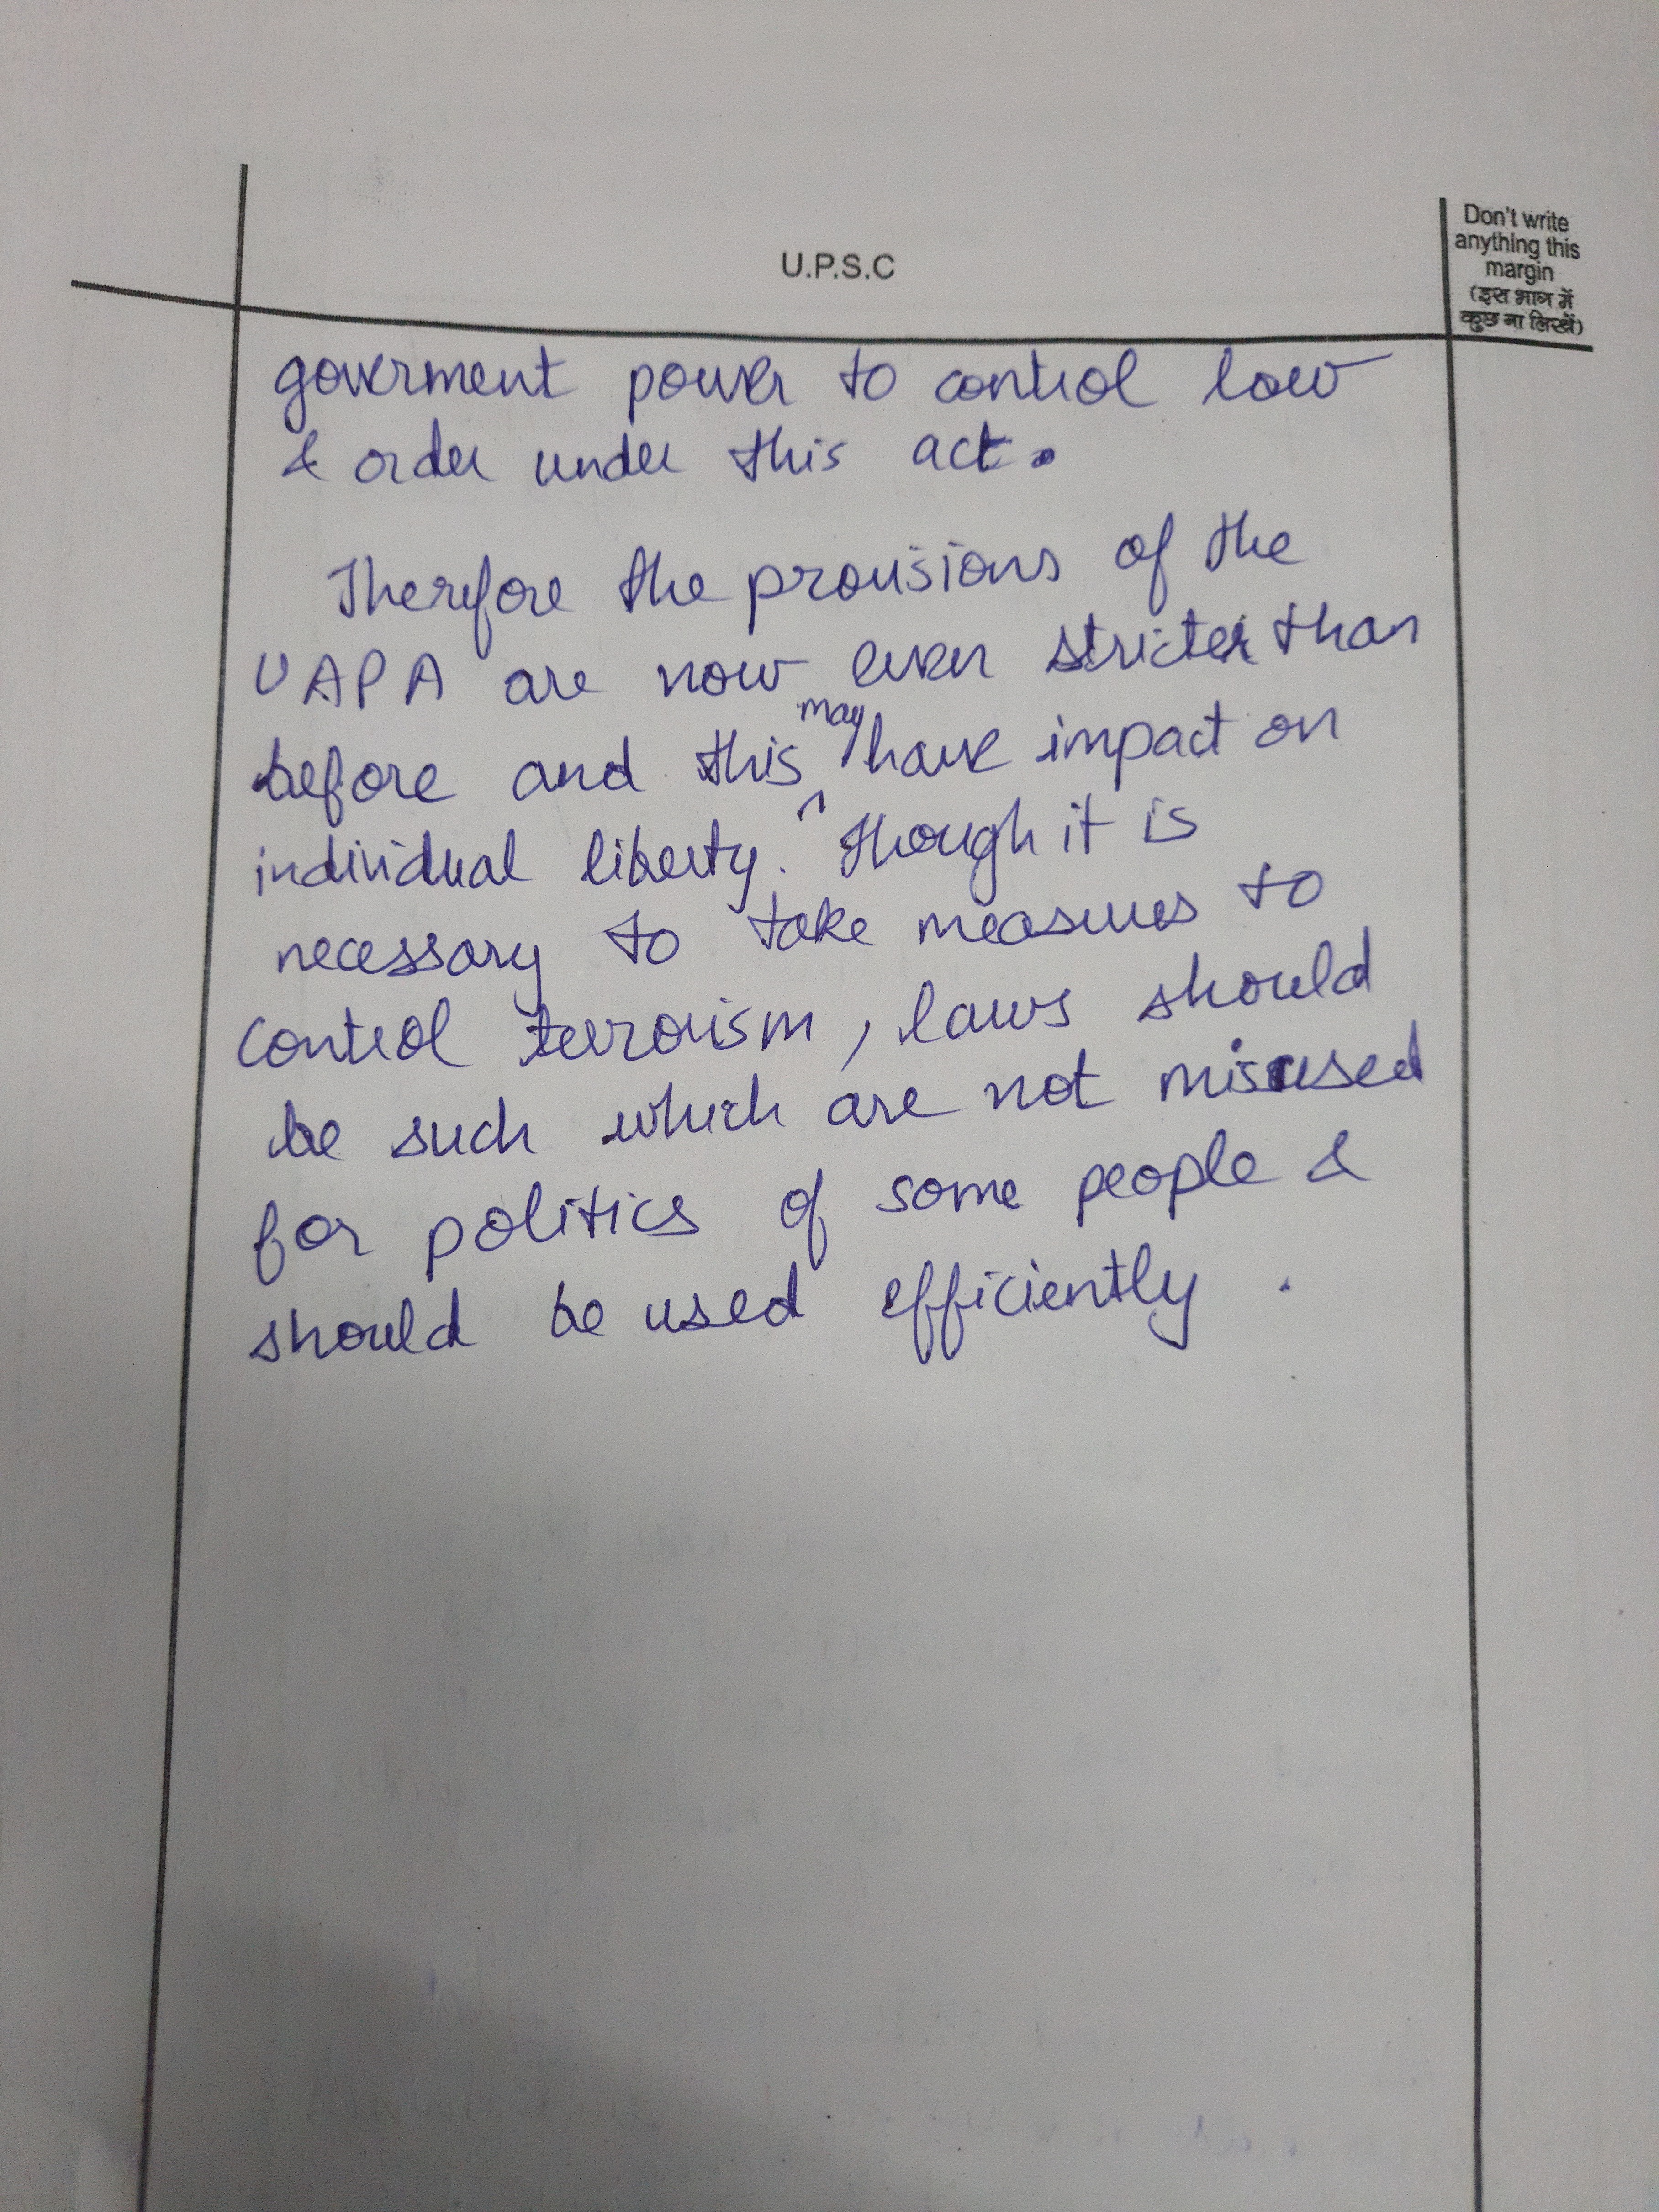 U.P.S.C
Don't write
anything this
margin
(इस भाग में
कुछ ना लिखें)
goverment power to control law
& order under this act.
Therefore the provisions of the
UAPA are now even stricter than
before and this may have impact on
individual liberty. Though it is
necessary to take measures to
control terrorism, laws should
be such which are not misused
for politics of some people &
should be used efficiently.